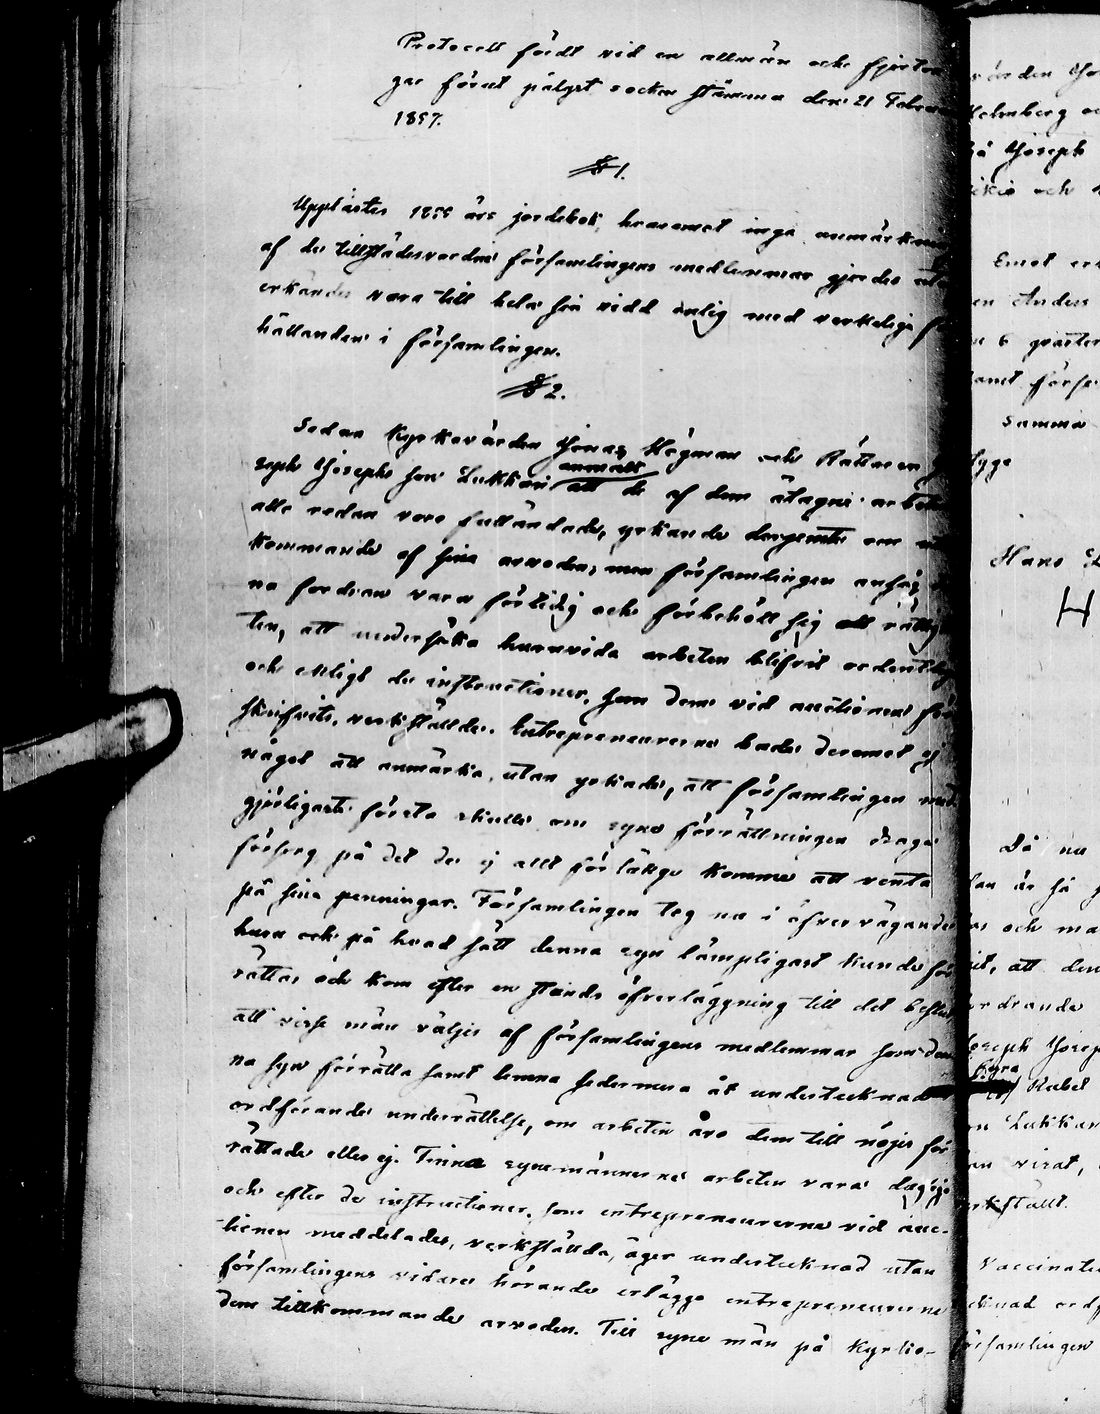 Protocoll fördt vid en allmän och fjorton
gar förut pålyst sockenstämma den 21 Februa
1857.
§ 1.
Upplästes 1855 års jordebok, hvaremot inga anmärknin
af de tillstädesvardne församlingens medlemmar gjordes utan
erkändes vara till hela sin vidd enlig med verkeliga för
hållanden i församlingen.
§ 2.
Sedan Kyrkovärden Jonas Högman och Rättaren Jo
seph Josephs son Lukkari anmält att de af dem åtagne arbeten
alla redan voro fulländade, yrkande derjemte om ut
kommande af sina arvoden, men församlingen ansåg den
na fordran vara förtidig och förbehöll sig all rättighe
ten, att undersöka huruvida arbeten blifvit ordentligt
och enligt de instructioner, som dem vid auctionen före
skrifvits, verkställde. Entrepreneurerne hade deremot ej
något att anmärka, utan yrkade, att församlingen med
görligaste första skulle om syne förrättningen draga
försorg på det de ej allt för länge komme att vänta
på sina penningar. Församlingen tog nu i öfvervägande
huru och på hvad sätt denna syn lämpligast kunde för
rättas och kom efter en stunds öfverläggning till det beslut
att visse män väljes af församlingens medlemmar som den
na syn förrätta samt lemna sedermera åt undertecknad
ordförande underrättelse, om arbeten äro dem till nöjes för
rättade eller ej. Finna synemännerne arbeten vara dugliga
och efter de instructioner, som entrepreneurerne vid auc-
tionen meddelades, verkställda, äger undertecknad utan
församlingens vidare hörande erlägga entrepreneurerne
dem tillkommande arvoden. Till syne män på Kyrko-
värden Jo
Holmberg oc
på Joseph
och
Emot
en Anders
6 qvarter
samt förse
samma
lyge
Hans
H
Då nu
lan är så
och ma
, att den
ordrande
Joseph Josep
Fyra
Rabel
on Lukkar
an visat,
erkställt.
Vaccinatio
ecknad ordf
församlingen